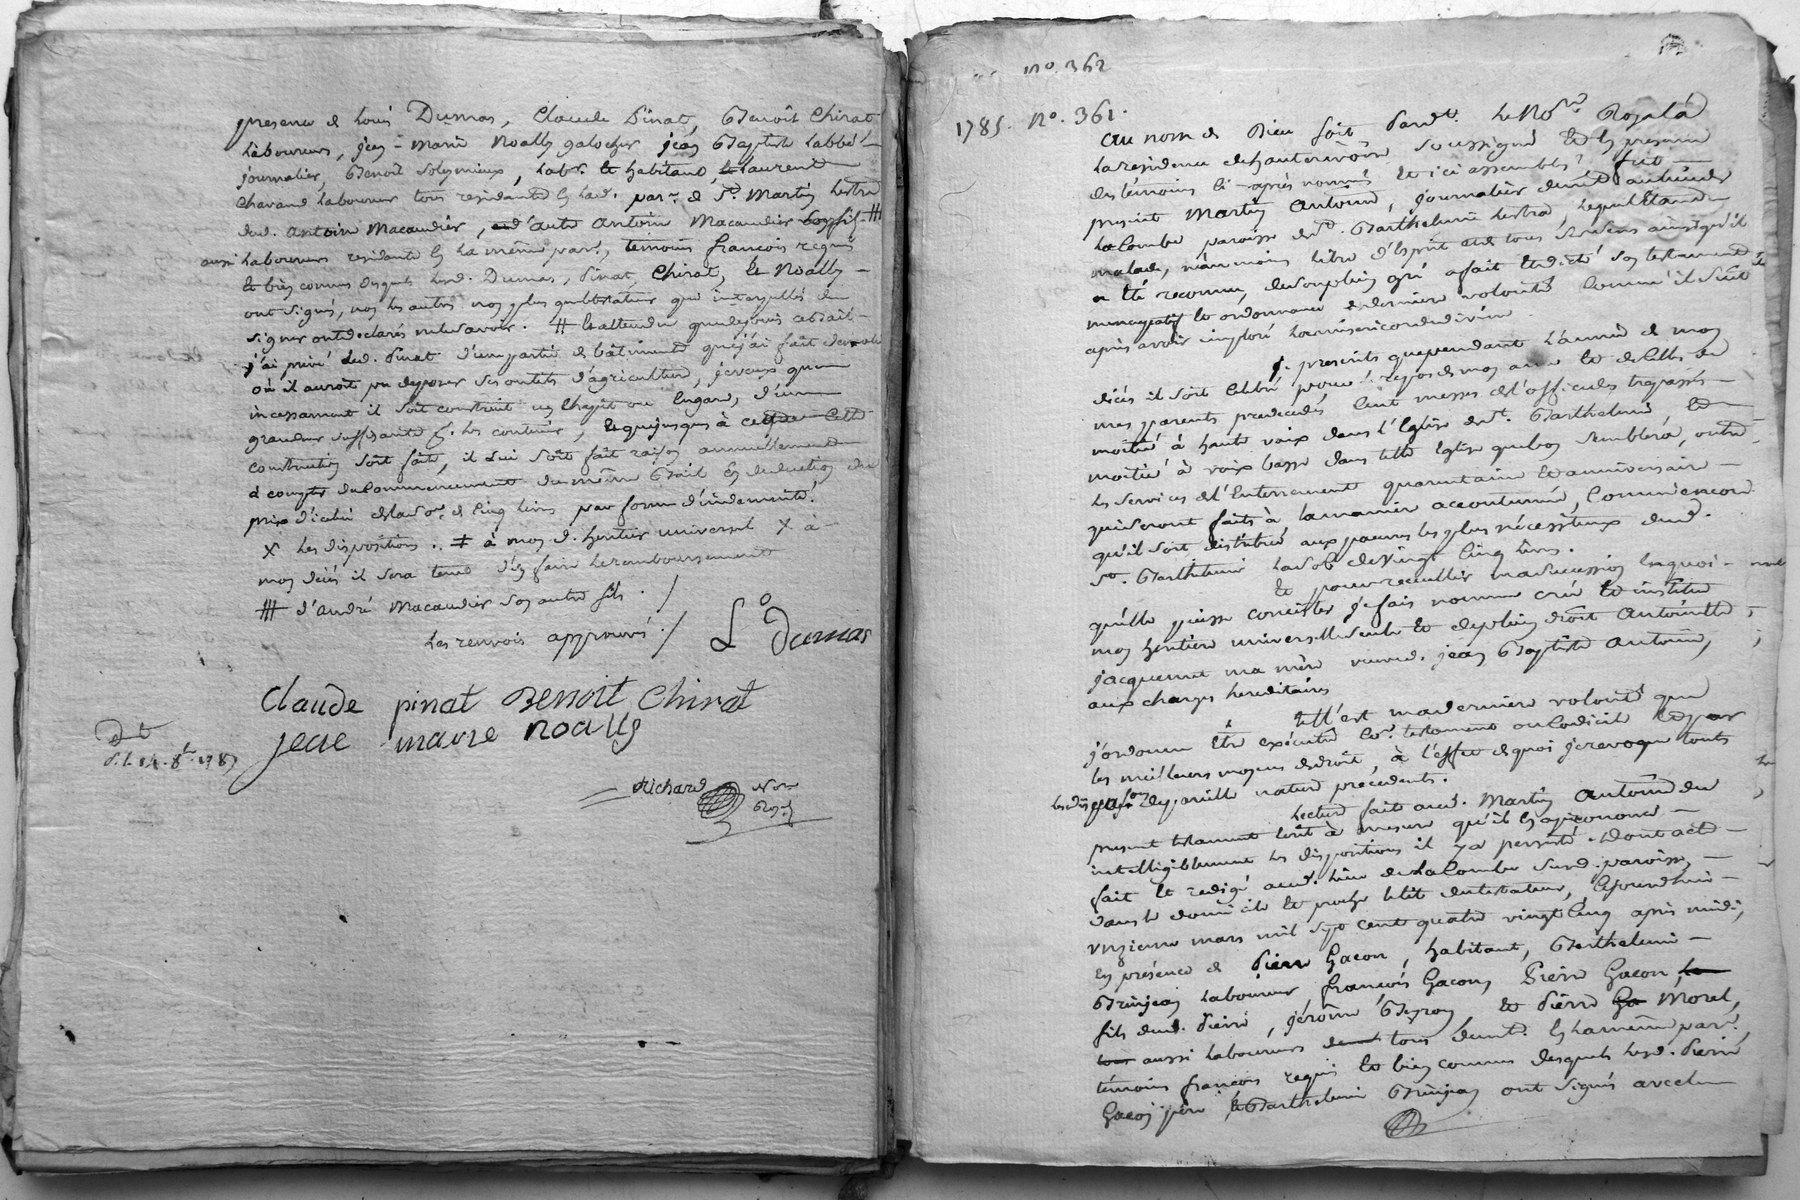 presence de Louis Dumas, Claude Pinat, Benoit Chirat
Laboureurs, jean-marie Noally galocher jean Baptiste Labbé
journalier, Benoit Solymieux, Labr. & habitant, Laurent
Chavand Laboureur tous residants en lad. parr. de St. Martin Lestra
dud. antoine Macaudier, d'autre antoine Macaudier son fils #
aussi Laboureurs residants en La même parr., temoins francois requis
et bien connus desquels lesd. Dumas, Pinat, Chirat, & Noally
ont signés, non les autres non plus que le testateur que interpellés de
signer ont déclarés ne le savoir. # & attendu que depuis ce bail
j'ai privé led. Pinat d'une partie de bâtiments que j'ai fait démolir
où il auroit pu deposer ses outils d'agriculture, je veux que
incessament il soit construit un Chapit ou Engard, d'une
grandeur suffisante pr. les contenir, & que jusques à ce que cette
construction soit faite, il lui soit fait raison annuellement
à compter du commencement du même Bail en deduction du
prix d'icelui de la so.e de cinq livres par forme d'indemnité.
X les dispositions .. ≠ à mon d. heritier universel X à
mon décés il sera tenu d'en faire le remboursement
# d'andré Macaudier son autre fils ./
Les renvois approuvés ./ L Dumas
Claude pinat Benoit Chirat
jean marie noally
Richard Nore
Roy.l
No. 362
1785. No. 361.
Au nom de Dieu soit Pardt. Le Nore Royal à
La residence de hauterivoire soussigné & en presence
des témoins ci-aprés nommés & ici assemblés fut
présent Martin Antoine, journalier demt. au lieu de
La Combe paroisse de St. Barthelemi Lestra, lequel étant
malade, néanmoins libre d'esprit & de tous ses sens ainsi qu'il
a été reconnu, de son plein gré a fait & dicté son testament
nuncupatif & ordonnance de derniere volonté comme il suit
aprés avoir imploré La misericorde divine
je prescrits que pendant L'année de mon
décés il soit célébré pour le repos de mon ame & de celles de
mes parents predecedés cent messes de l'office des trepassés
moitié à haute voix dans l'Eglise de St. Barthelemi, &
moitié à voix basse dans telle Eglise que bon semblera, outre
les services de l'Enterrement quarantaine & anniversaire
qui seront faits à la maniere accoutumée, Comme encore
qu'il soit distribué aux pauvres les plus nécessiteux dud.
St. Barthelemi La so.e de vingt cinq livres.
& pour recueillir ma succession en quoi
qu'elle puisse consister je fais nomme créé & institue
mon heritiere universelle seule & de plein droit Antoinette
jacquemet ma mère veuve d. jean Baptiste Antoine,
aux charges hereditaires
telle est ma derniere volonté que
j'ordonne être exécutée co.e testament ou codicil & par
les meilleurs moyens de droit, à l'effet de quoi je revoque toutes
les dispo.ons de pareille nature precedents.
Lecture faite aud. Martin Antoine du
présent testament tout à mesure qu'il en a prononcé
intelligiblement les dispositions il y a persisté. Dont acte
fait & redigé aud. lieu de La Combe sud. paroisse,
dans le domicile & proche le lit du testateur, cejourdhui
onzieme mars mil sept cent quatre vingt cinq après midi,
En présence de Pierre Gacon, habitant, Barthelemi
Brinjean Laboureur francois Gacon, Pierre Gacon,
fils dud. Pierre, jérôme Peyron, & Pierre Morel,
aussi Laboureurs tous demt. en La même parr.
témoins francois requis & bien connus desquels lesd. Pierre
Gacon père, & Barthelemi Brinjean ont signés avec le